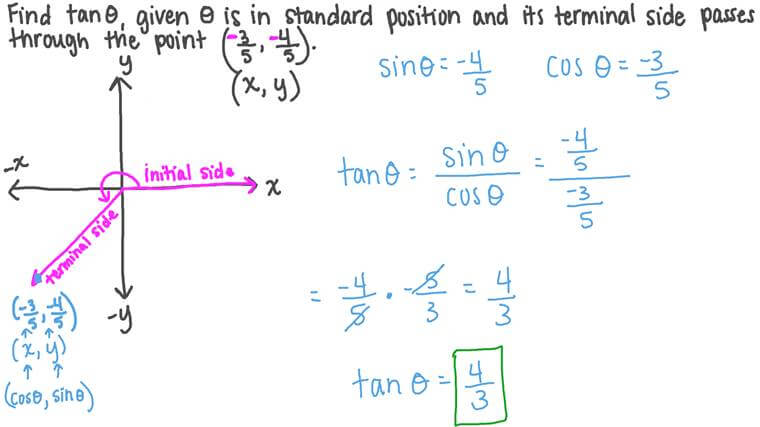 Find tanθ, given θ is in standard position and its terminal side passes
through the point (-3/5, -4/5).
(x, y)
sinθ = -4/5
cos θ = -3/5
y
-x
initial side
x
terminal side
-y
(-3/5, -4/5)
(x, y)
(cosθ, sinθ)
tanθ = sinθ/cosθ = (-4/5)/(-3/5)
= -4/5 · -5/3 = 4/3
tan θ = 4/3